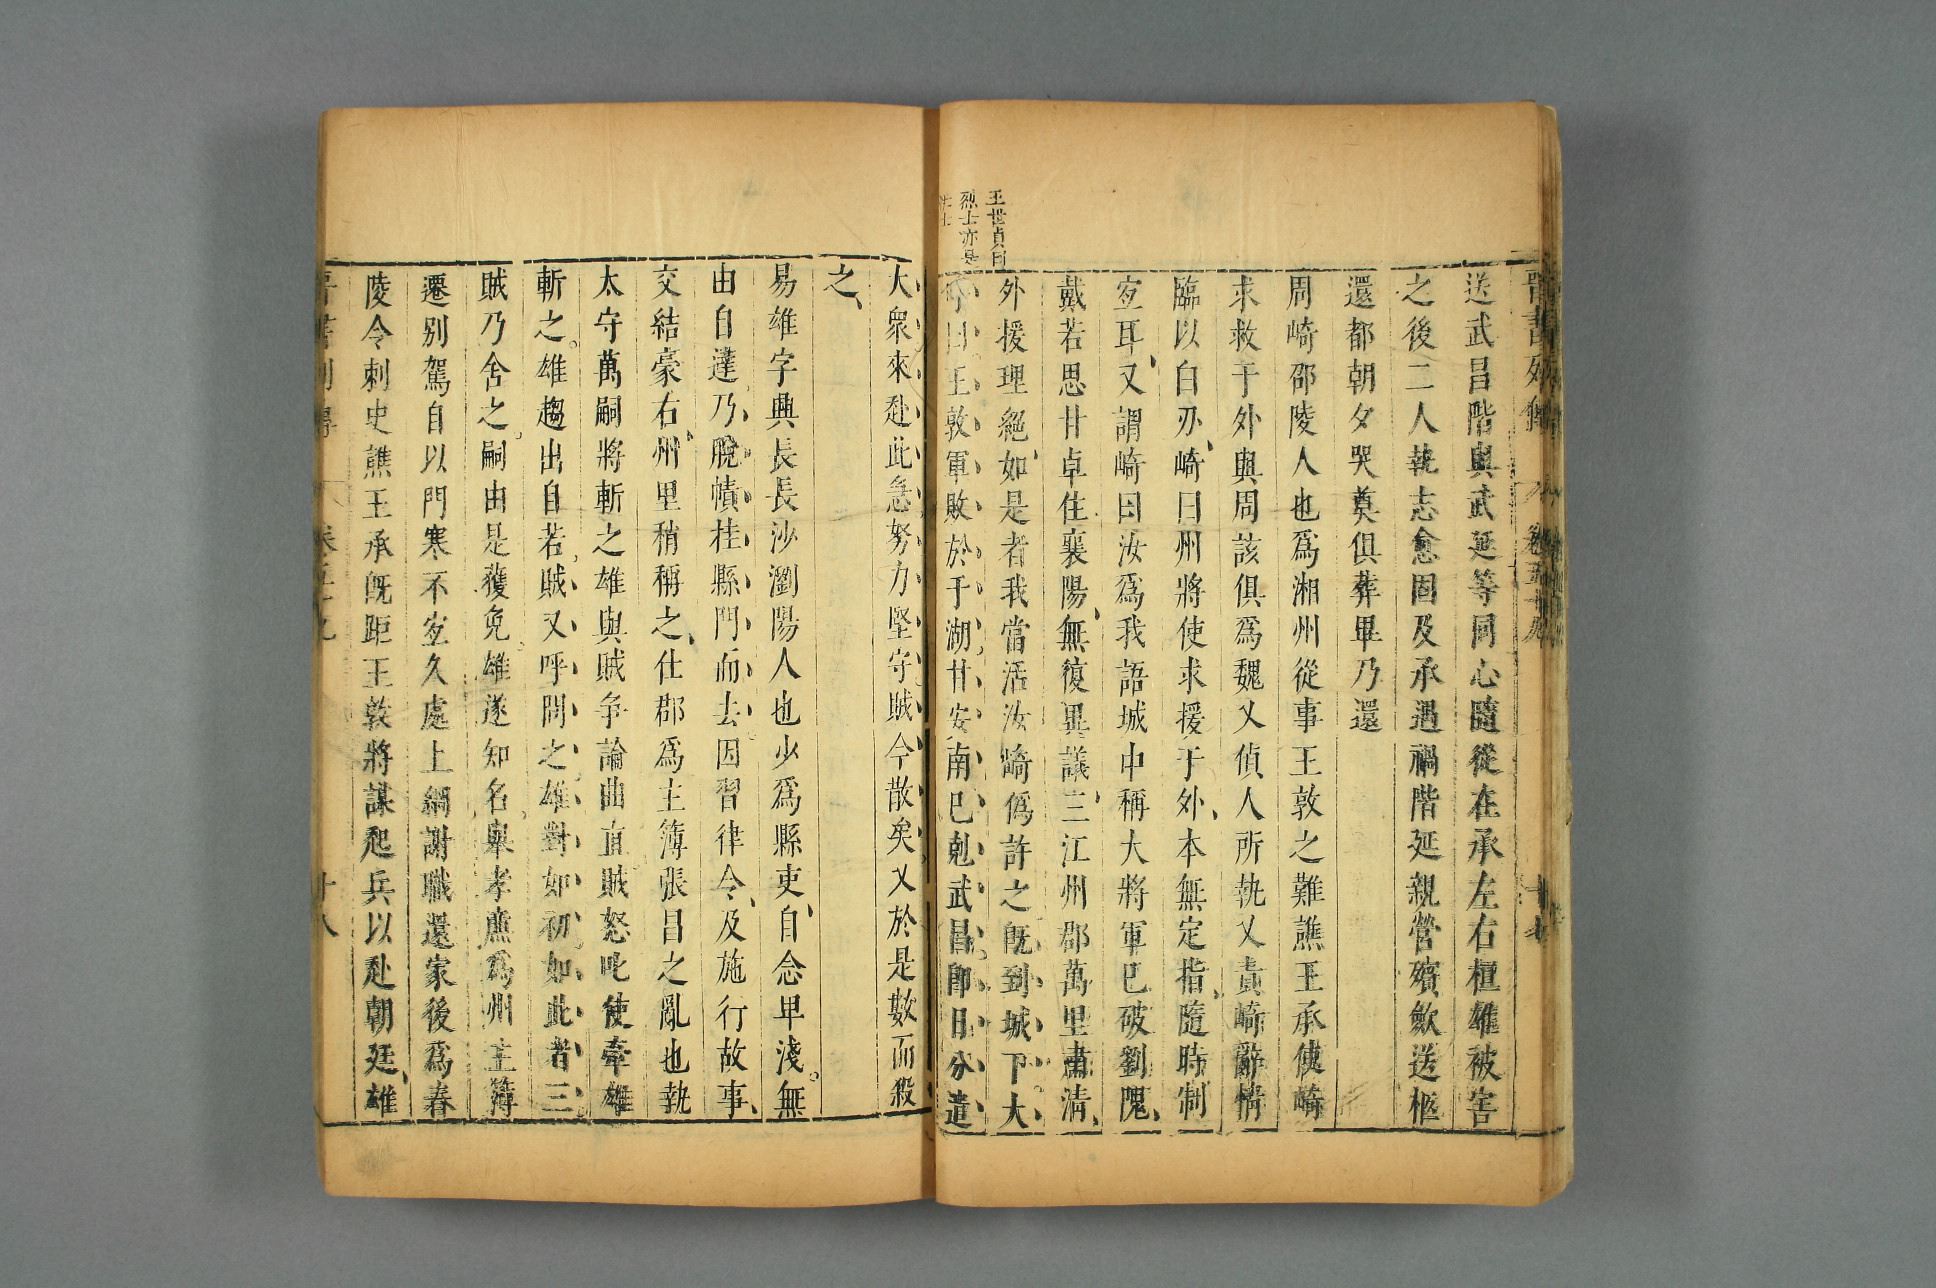 送武昌階與武延等同心隨從在承左右桓雄被害
之後二人執志愈固及承遇禍階延親營殯歛送柩
還都朝夕哭奠俱葬畢乃還
周崎邵陵人也爲湘州從事王敦之難譙王承使崎
求救于外與周該俱爲魏乂偵人所執乂責崎辭情
臨以白刃崎曰州將使求援于外本無定指隨時制
宐耳乂謂崎曰汝爲我語城中稱大將軍已破劉隗
戴若思甘卓住襄陽無復異議三江州郡萬里肅清
外援理絕如是者我當活汝崎僞許之旣到城下大
呼曰王敦軍敗於于湖甘安南已剋武昌卽日分遣
王世貞曰
烈士亦是
大衆來赴此急努力堅守賊今散矣乂於是數而殺
之
易雄字興長長沙瀏陽人也少爲縣吏自念卑淺無
由自達乃脫幘挂縣門而去因習律令及施行故事
交結豪右州里稍稱之仕郡爲主簿張昌之亂也執
太守萬嗣將斬之雄與賊爭論曲直賊怒叱使牽雄
斬之雄趨出自若賊又呼問之雄對如初如此者三
賊乃舍之嗣由是獲免雄遂知名舉孝廉爲州主簿
遷別駕自以門寒不宐久處上綱謝職還家後爲舂
陵令刺史譙王承旣距王敦將謀起兵以赴朝廷雄
晉書列傳 卷五十九 十八